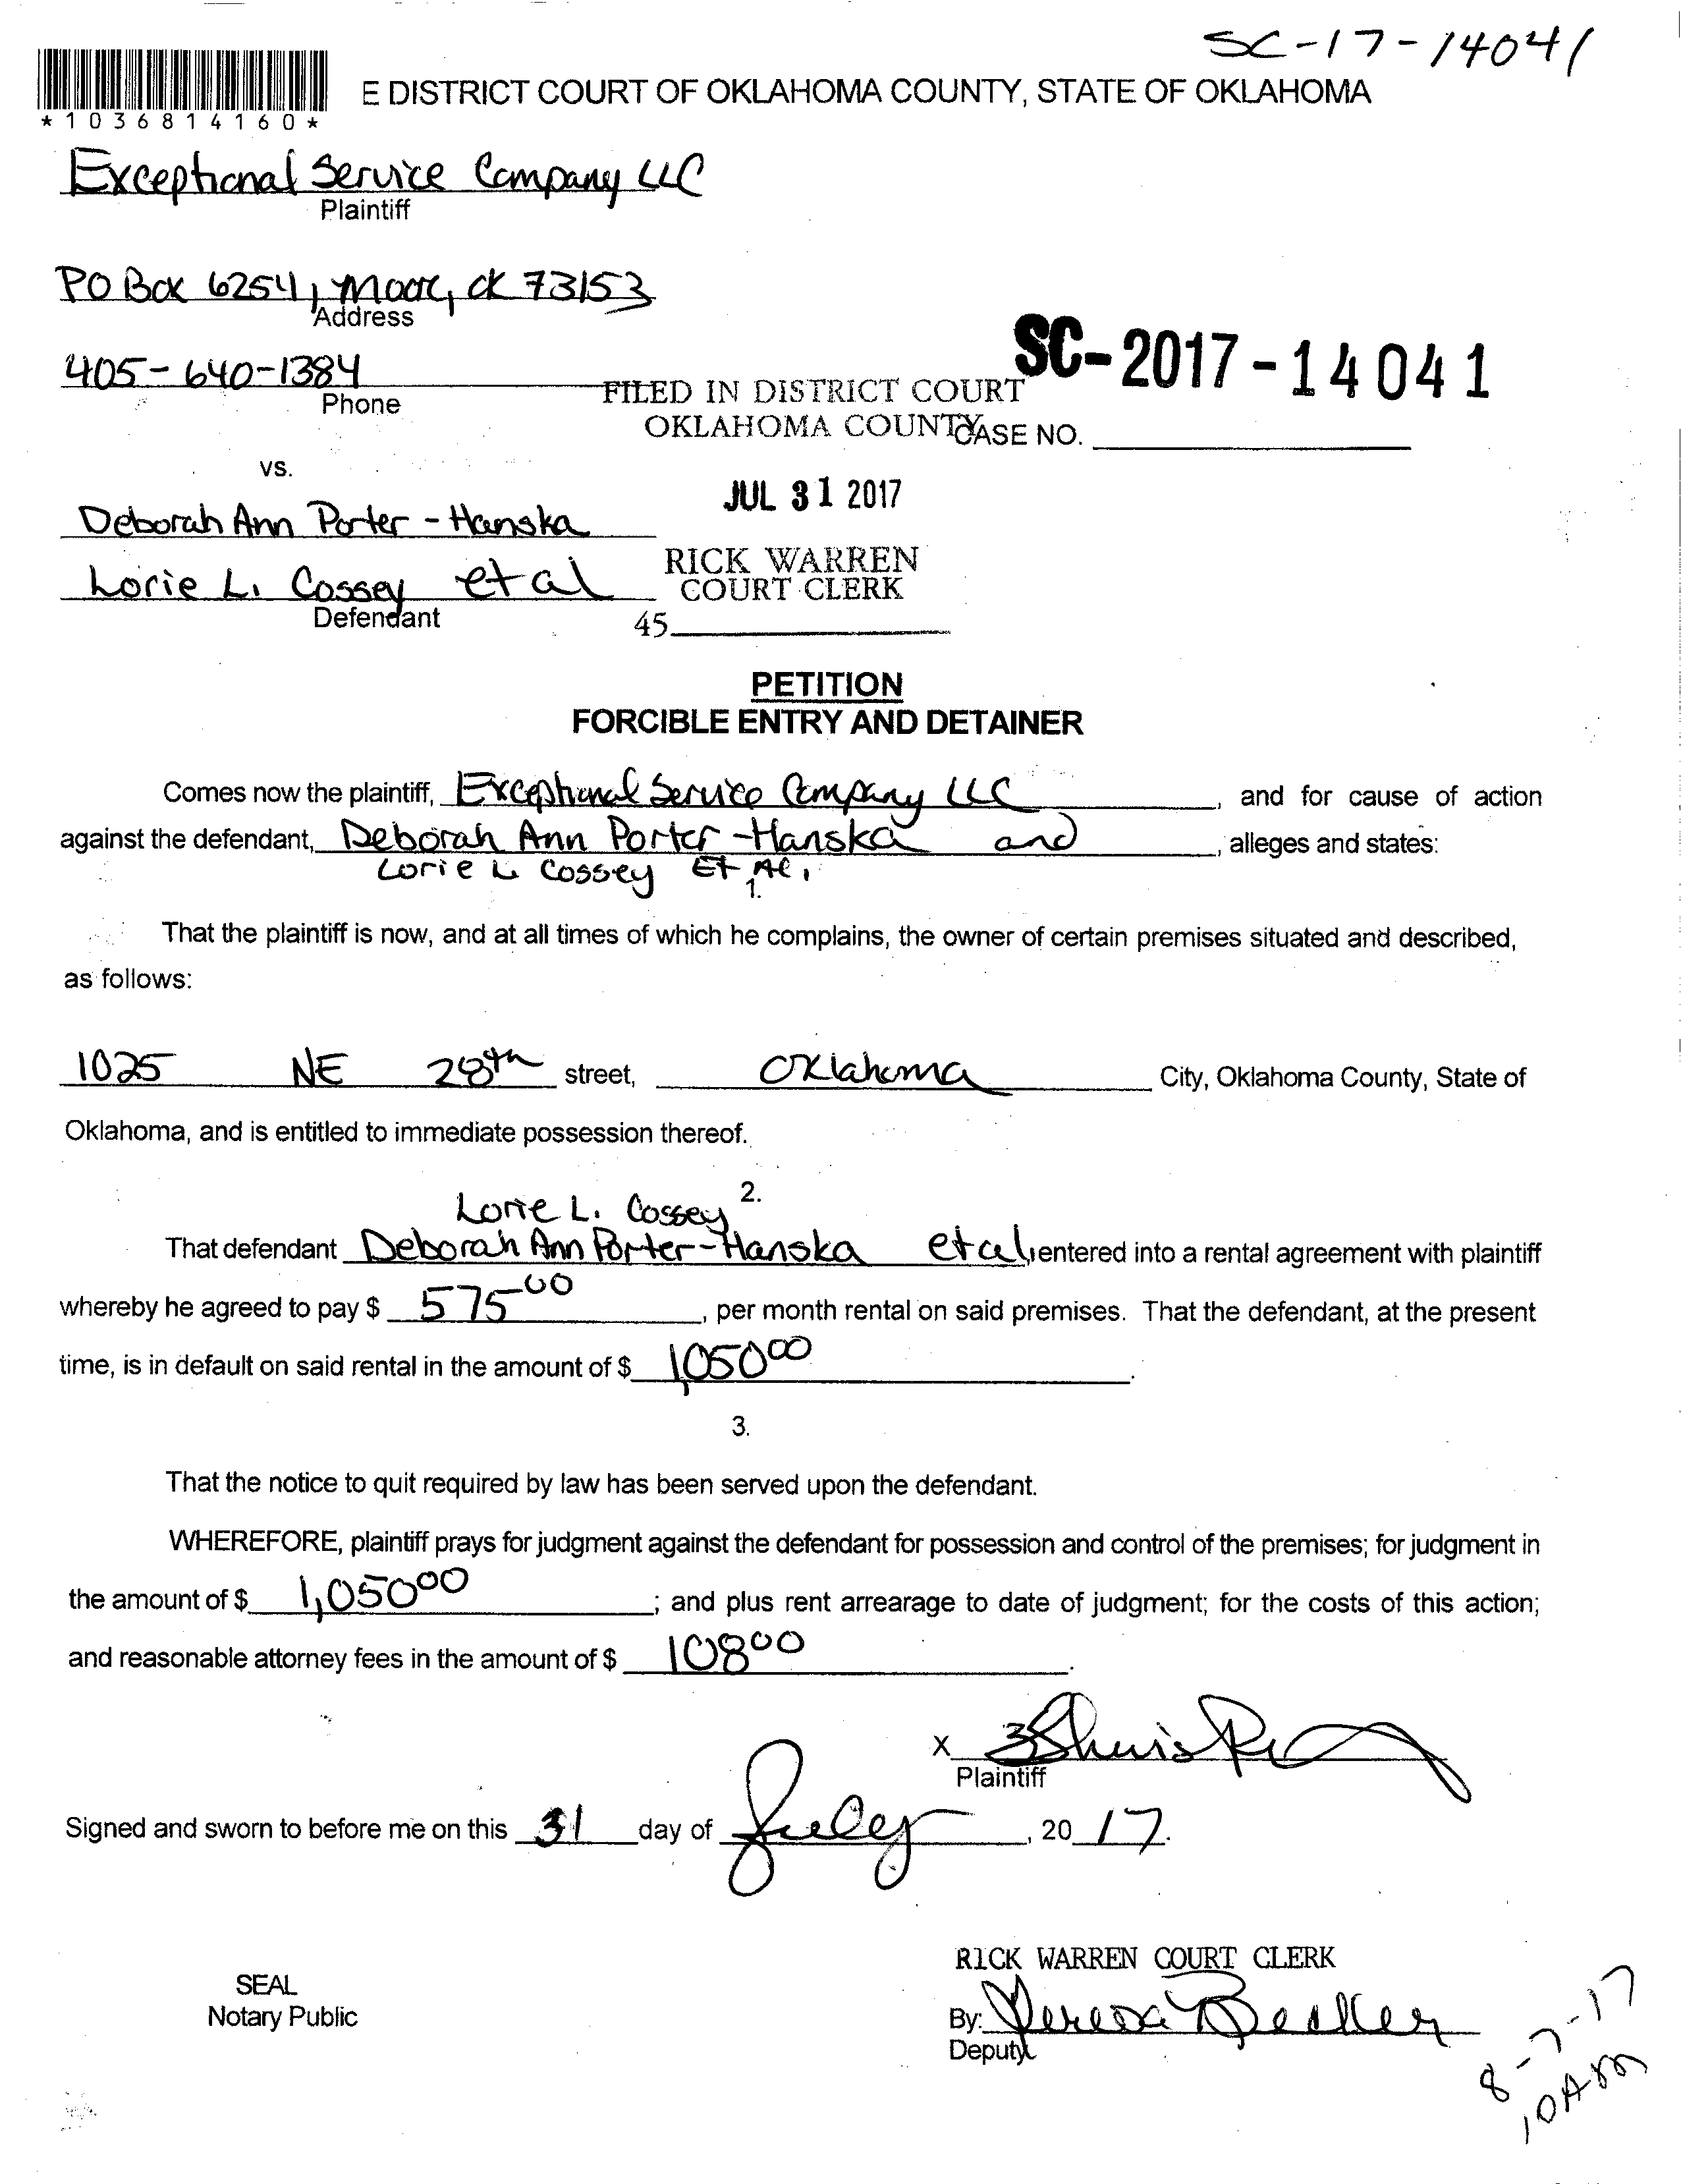 SC-17-14041
E DISTRICT COURT OF OKLAHOMA COUNTY, STATE OF OKLAHOMA
*1036814160*
Exceptional Service Company LLC
Plaintiff
PO Box 6254, Moore, OK 73153
Address
SC-2017-14041
405-640-1384
Phone
FILED IN DISTRICT COURT
OKLAHOMA COUNTY
CASE NO.
vs.
JUL 31 2017
Deborah Ann Porter-Hanska
RICK WARREN
COURT CLERK
Lorie L. Cossey et al
Defendant
45
PETITION
FORCIBLE ENTRY AND DETAINER
Comes now the plaintiff, Exceptional Service Company LLC, and for cause of action
against the defendant, Deborah Ann Porter-Hanska and, alleges and states:
Lorie L Cossey Et Al.
1.
That the plaintiff is now, and at all times of which he complains, the owner of certain premises situated and described,
as follows:
1025 NE 28th street, Oklahoma City, Oklahoma County, State of
Oklahoma, and is entitled to immediate possession thereof.
2.
Lorie L. Cossey
That defendant Deborah Ann Porter-Hanska et al, entered into a rental agreement with plaintiff
whereby he agreed to pay $ 575 00, per month rental on said premises. That the defendant, at the present
time, is in default on said rental in the amount of $ 1,050 00.
3.
That the notice to quit required by law has been served upon the defendant.
WHEREFORE, plaintiff prays for judgment against the defendant for possession and control of the premises; for judgment in
the amount of $ 1,050 00; and plus rent arrearage to date of judgment; for the costs of this action;
and reasonable attorney fees in the amount of $ 108 00.
X
Plaintiff
Signed and sworn to before me on this 31 day of July, 2017.
RICK WARREN COURT CLERK
SEAL
Notary Public
By: Teresa
Deputy
8-7-17
10AM